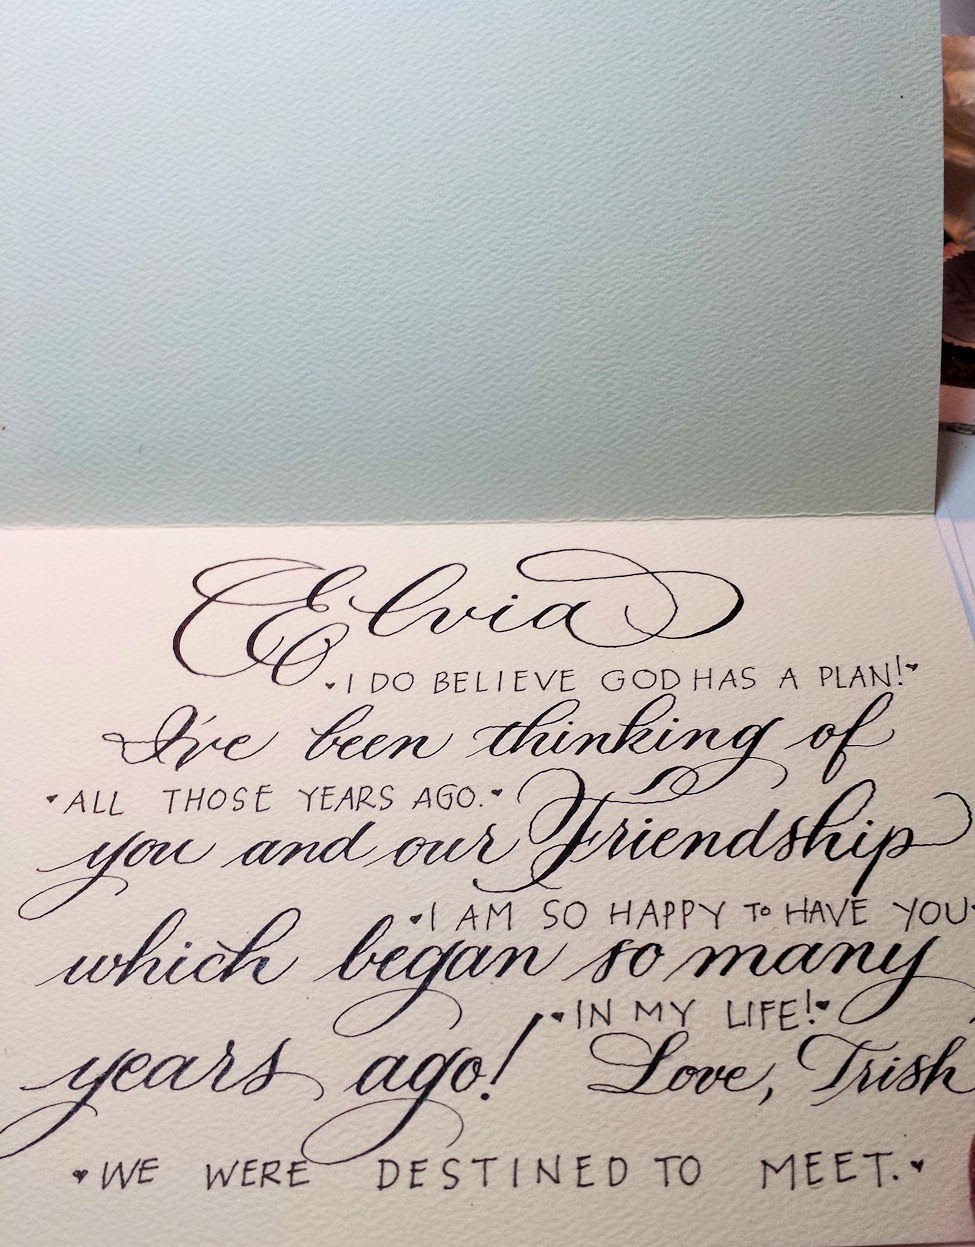 Elvia
♥I DO BELIEVE GOD HAS A PLAN!♥
I've been thinking of
♥ALL THOSE YEARS AGO.♥
you and our Friendship
♥I AM SO HAPPY TO HAVE YOU
which began so many
♥IN MY LIFE!♥
years ago! Love, Trish
♥WE WERE DESTINED TO MEET.♥